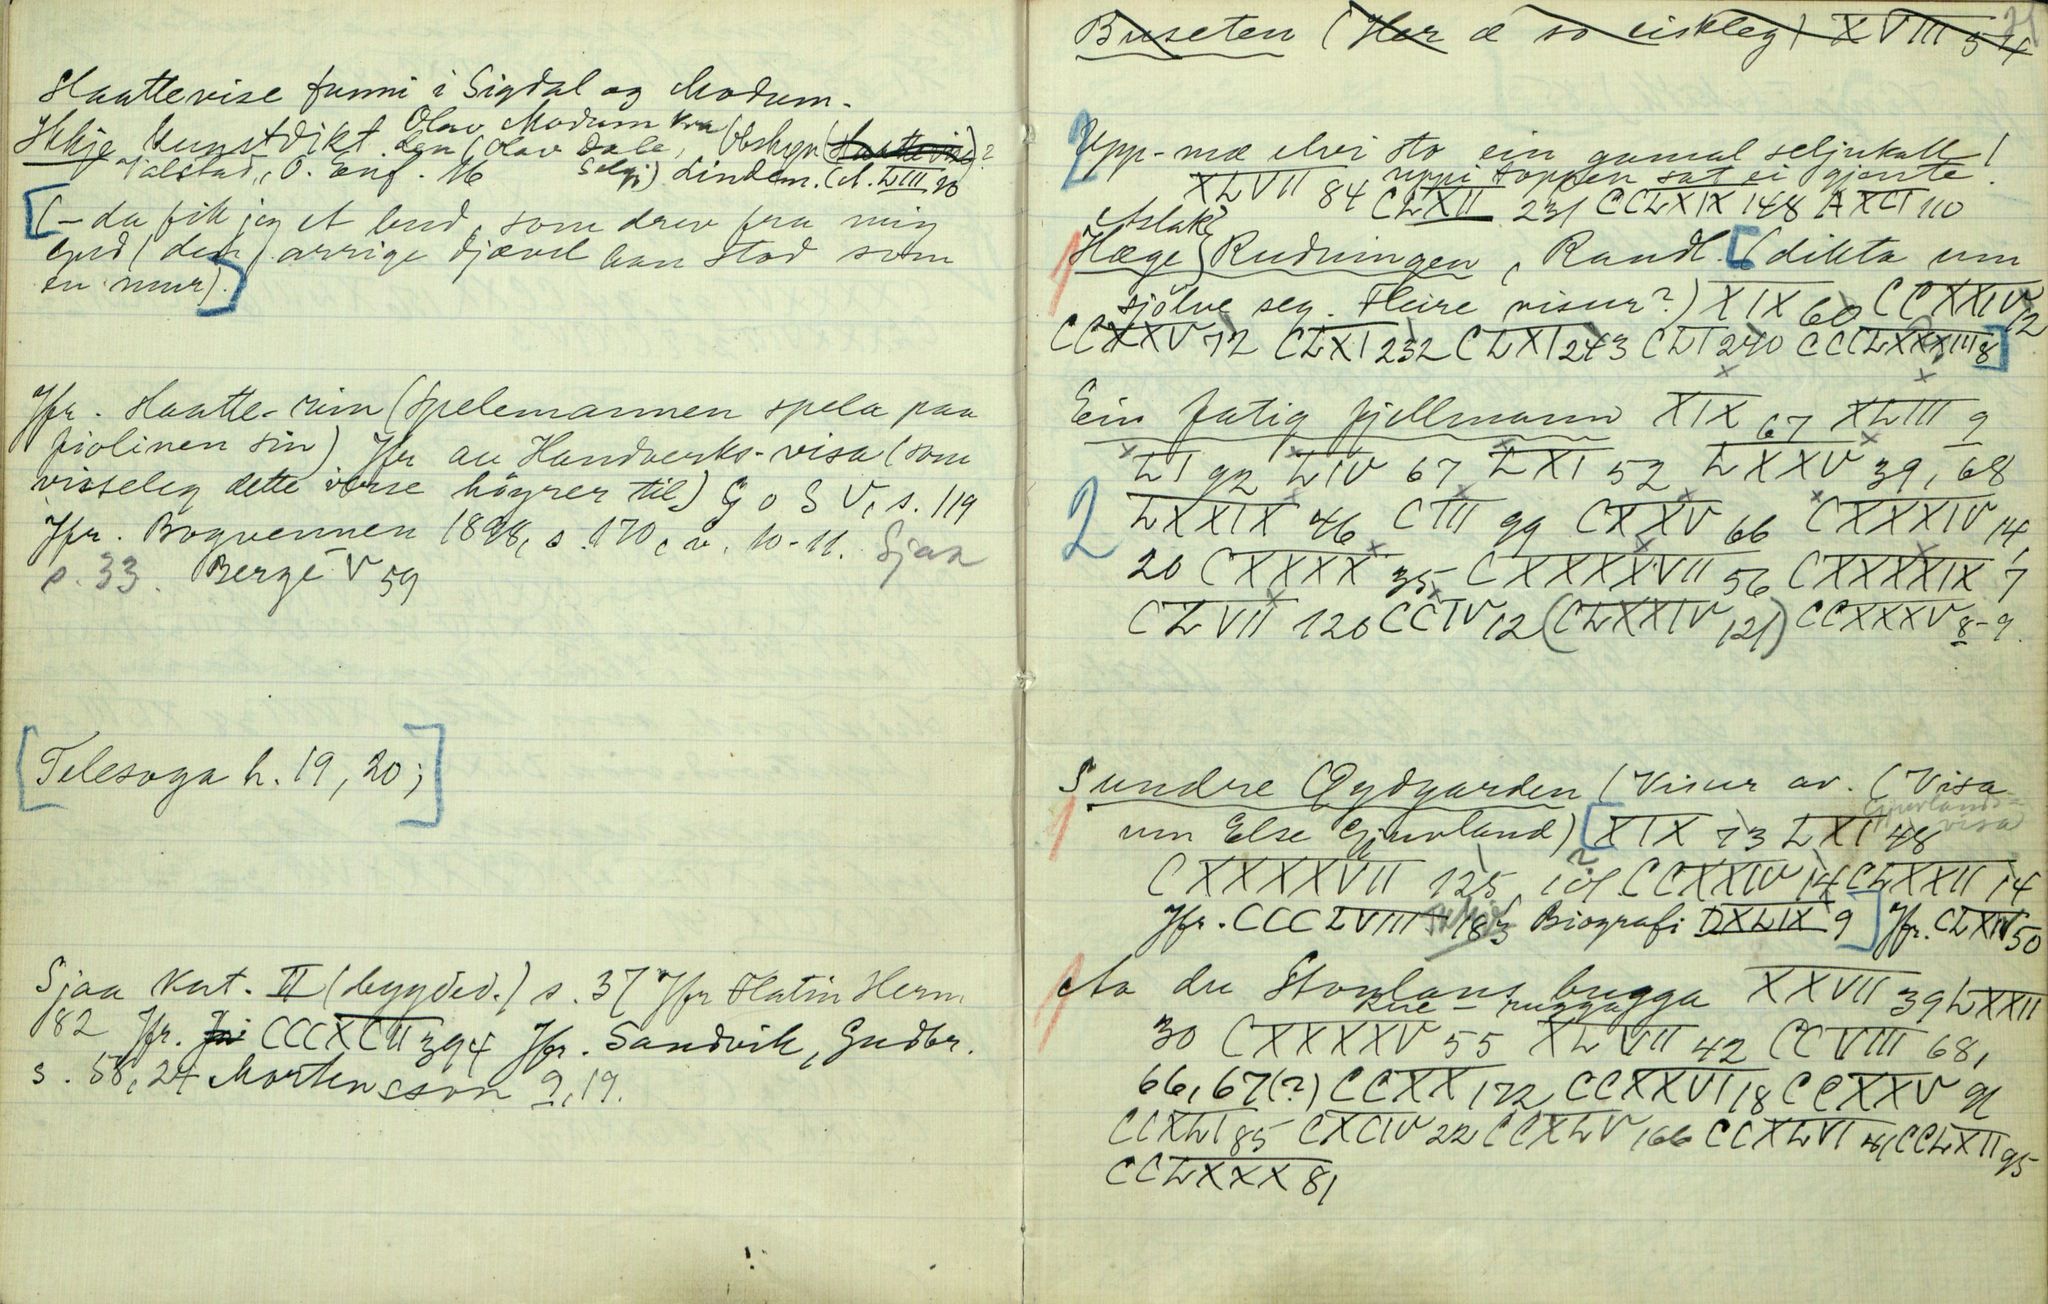 Haattevise funni i Sigdal og Modum.
Olav Modum
Ikkje Kunstdikt. den (Olav Dale,
Jalstad, O. Eng. 16 Lindem. (M. LIII, 20
(– da fik jeg et bud, som drev fra mig
(den) arrige djævel han stod som
en mur).
Jfr. Haatte-rim (Spelemannen spela paa
fiolinen sin) Jfr au Handverks-visa (som
visseleg dette verse höyrer til) G o S V, s. 119
Jfr. Bogvennen 1898, s. 170, v. 10-11. Sjaa
s. 33. Berge V 59
Telesoga h. 19, 20;
Sjaa Kat. II (bygded.) s. 37 Jfr Hatin Herm
182 Jfr. CCCXCII 394 Jfr. Sandvik, Gudbr.
s. 58, 24 Mortensson 2, 19.
71
Buseten (Her æ so eiskleg) XVIII 54
2 Upp-mæ elvi sto ein gamal seljukall /
uppi toppen sat ei gjente.
XLVII 84 CLXII 231 CCLXIX 148 A XCI 110
Aslak?
1 Hæge Rudningen, Randl. (dikta um
sjölve seg. Fleire visur?) XIX 60 CCXXIV 12
CCXXV 72 CLXI 232 CLXI 243 CLI 240 CCCLXXXIII 8
Ein fatig fjellmann XIX 67 XLIII 9
LI 92 LIV 67 LXI 52 LXXV 39, 68
2 LXXIX 46 CIII 99 CXXV 66 CXXXIV 14,
20 CXXXX 35 CXXXXVII 56 CXXXXIX 7
CLVII 120 CCIV 12 (CLXXIV 121) CCXXXV 8-9.
Sundre Øydgarden (Visur av. (Visa
Gjuvlands-
visa
1 um Else Gjuvland) XIX 73 LXI 48
CXXXXVII 125, CCXXIV 14 CLXXII 14
Jfr. CCCLVIII 183 Biografi DXLIX 9 Jfr. CLXIV 50
1 Aa du Storlans brugga XXVII 39 LXXII
30 CXXXXV 55 XLVII 42 CCVIII 68,
66, 67(?) CCXX 172 CCXXVI 18 CCXXV 91
CCXLI 85 CXCIV 22 CCXLV 166 CCXLVI 41 CCLXII 95
CCLXXX 81